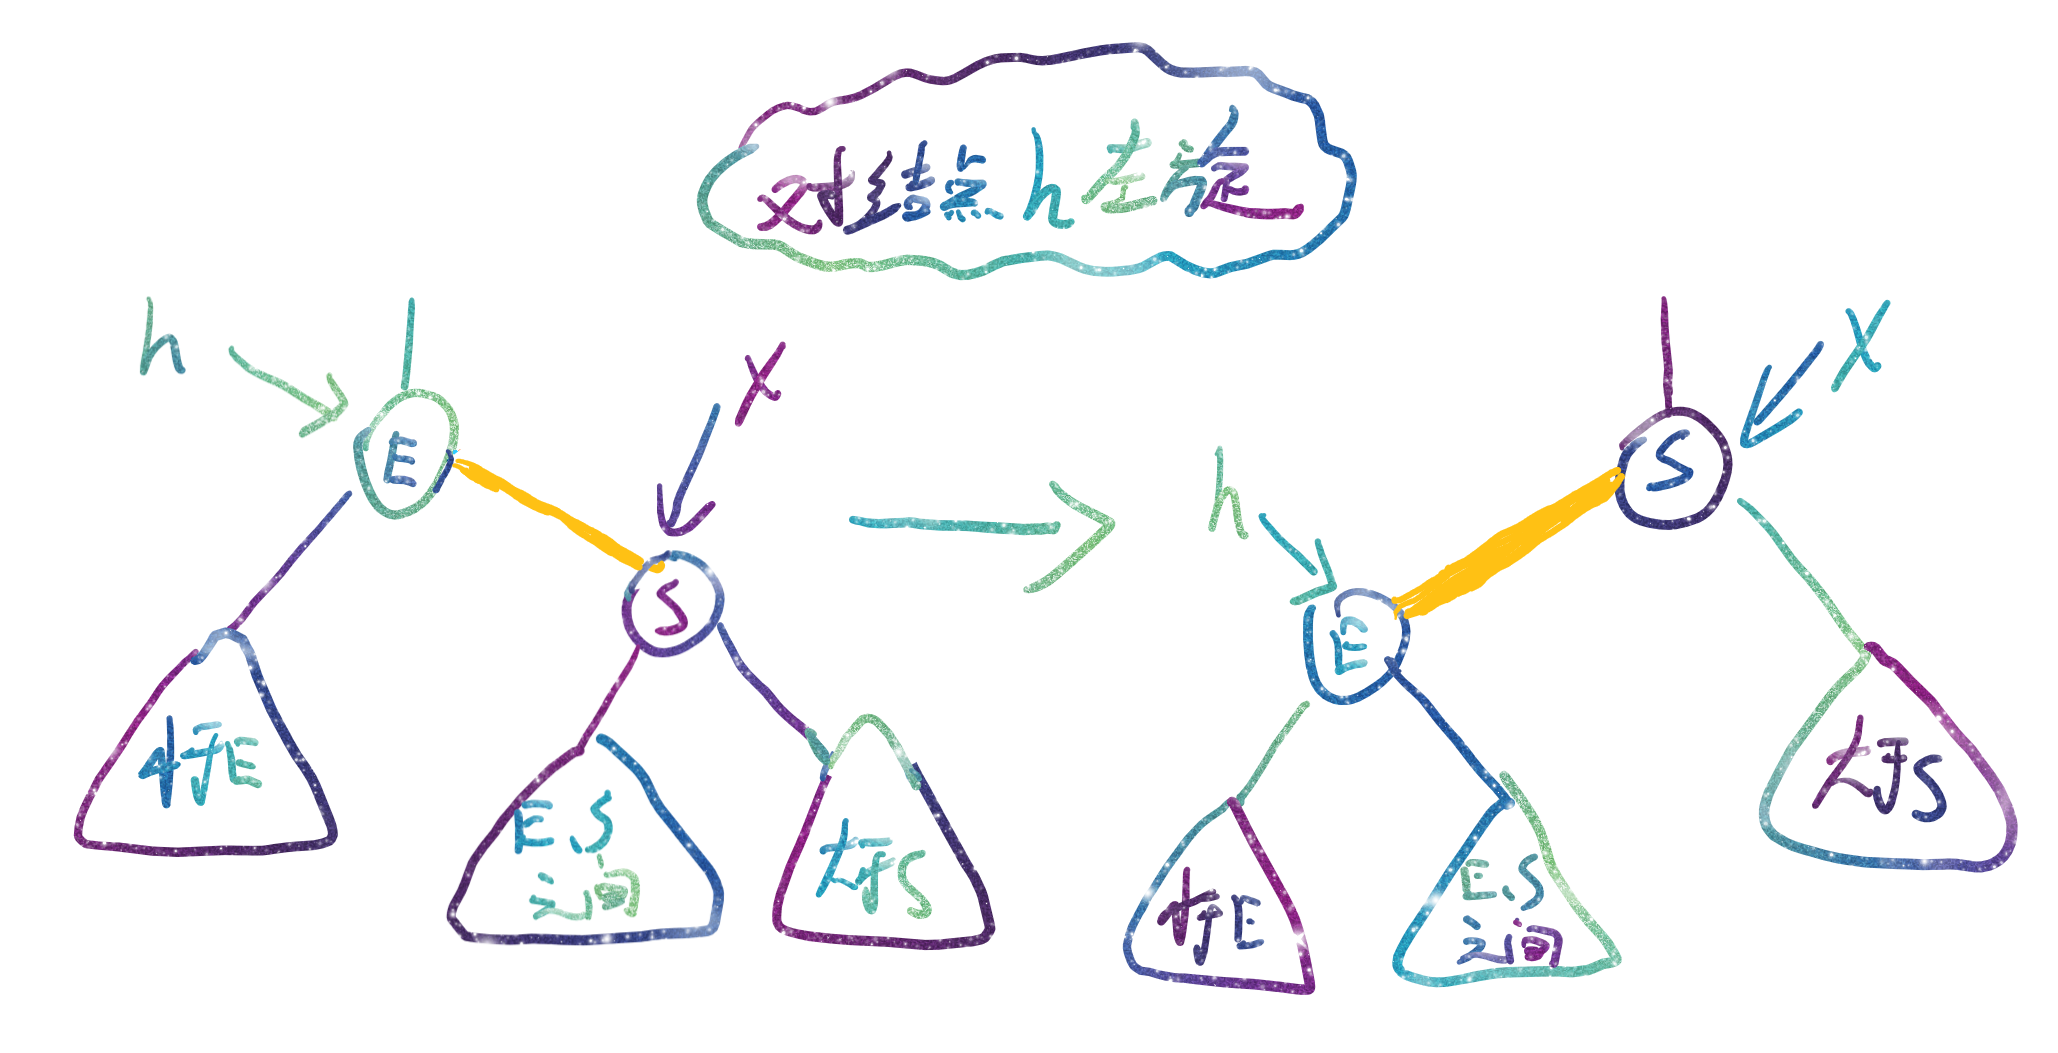 对结点h左旋
h
E
x
S
小于E
E、S
之间
大于S
x
S
h
E
小于E
E、S
之间
大于S